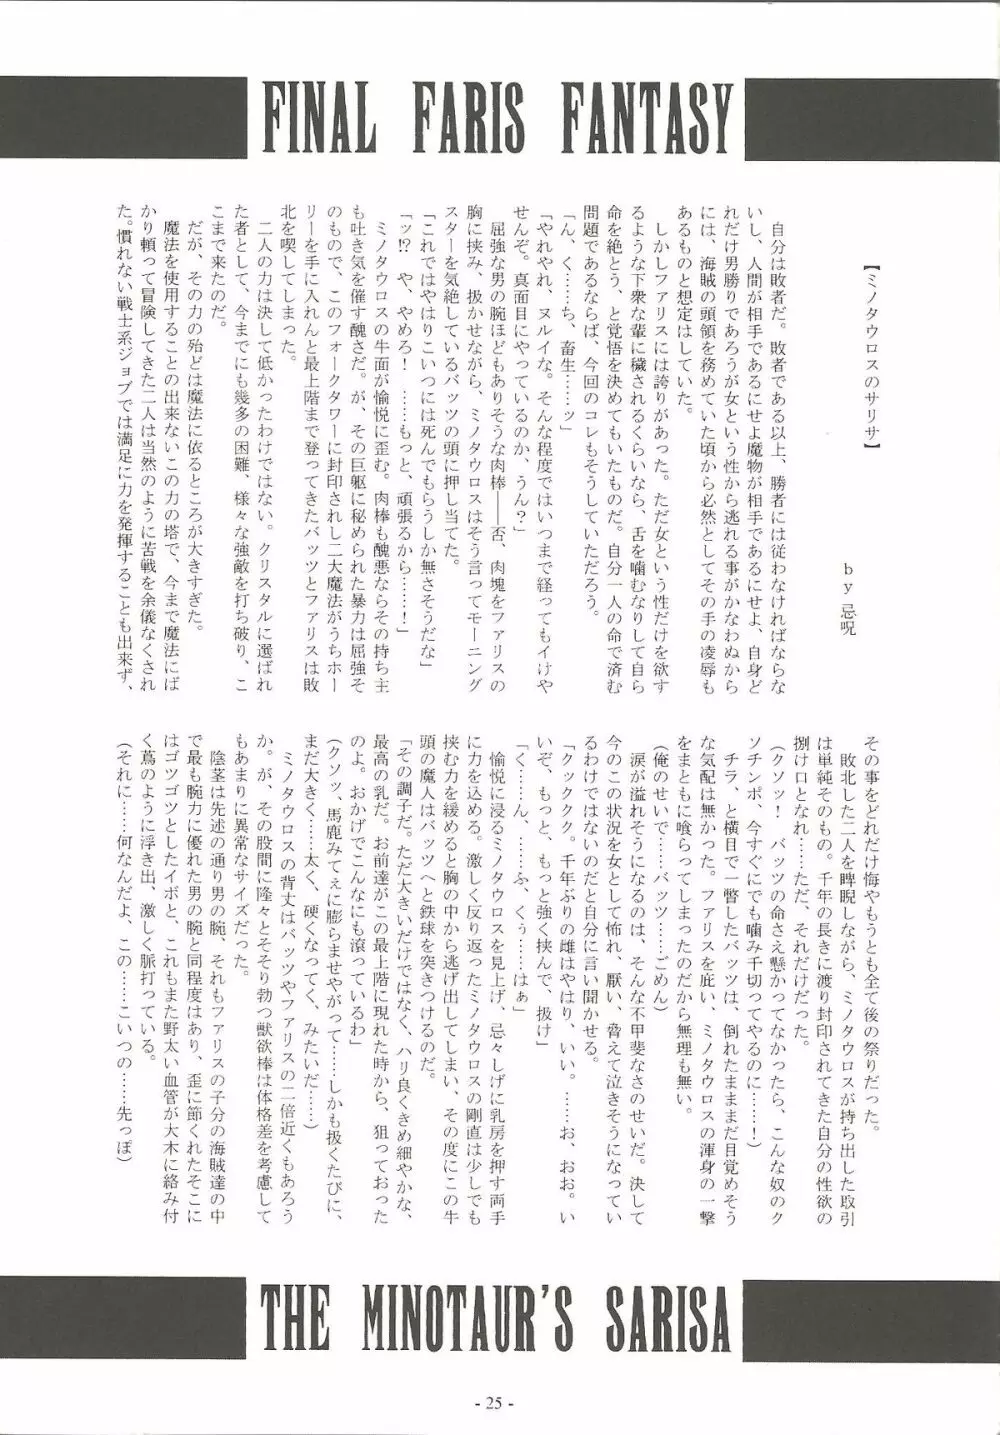 FINAL FARIS FANTASY
【ミノタウロスのサリサ】
by 忌呪
自分は敗者だ。敗者である以上、勝者には従わなければならな
いし、人間が相手であるにせよ魔物が相手であるにせよ、自身ど
れだけ男勝りであろうが女という性から逃れる事がかなわぬから
には、海賊の頭領を務めていた頃から必然としてその手の凌辱も
あるものと想定はしていた。
しかしファリスには誇りがあった。ただ女という性だけを欲す
るような下衆な輩に穢されるくらいなら、舌を噛むなりして自ら
命を絶とう、と覚悟を決めてもいたものだ。自分一人の命で済む
問題であるならば、今回のコレもそうしていただろう。
「ん、く……ち、畜生……ッ」
「やれやれ、ヌルイな。そんな程度ではいつまで経ってもイけや
せんぞ。真面目にやっているのか、うん？」
屈強な男の腕ほどもありそうな肉棒――否、肉塊をファリスの
胸に挟み、扱かせながら、ミノタウロスはそう言ってモーニング
スターを気絶しているバッツの頭に押し当てた。
「これではやはりこいつには死んでもらうしか無さそうだな」
「ッ!?　や、やめろ！　………もっと、頑張るから……！」
ミノタウロスの牛面が愉悦に歪む。肉棒も醜悪ならその持ち主
も吐き気を催す醜さだ。が、その巨躯に秘められた暴力は屈強そ
のもので、このフォークタワーに封印されし二大魔法がうちホー
リーを手に入れんと最上階まで登ってきたバッツとファリスは敗
北を喫してしまった。
二人の力は決して低かったわけではない。クリスタルに選ばれ
た者として、今までにも幾多の困難、様々な強敵を打ち破り、こ
こまで来たのだ。
だが、その力の殆どは魔法に依るところが大きすぎた。
魔法を使用することの出来ないこの力の塔で、今まで魔法にば
かり頼って冒険してきた二人は当然のように苦戦を余儀なくされ
た。慣れない戦士系ジョブでは満足に力を発揮することも出来ず、
その事をどれだけ悔やもうとも全て後の祭りだった。
敗北した二人を睥睨しながら、ミノタウロスが持ち出した取引
は単純そのもの。千年の長きに渡り封印されてきた自分の性欲の
捌け口となれ……ただ、それだけだった。
（クソッ！　バッツの命さえ懸かってなかったら、こんな奴のク
ソチンポ、今すぐにでも噛み千切ってやるのに……！）
チラ、と横目で一瞥したバッツは、倒れたまままだ目覚めそう
な気配は無かった。ファリスを庇い、ミノタウロスの渾身の一撃
をまともに喰らってしまったのだから無理も無い。
（俺のせいで……バッツ……ごめん）
涙が溢れそうになるのは、そんな不甲斐なさのせいだ。決して
今のこの状況を女として怖れ、厭い、脅えて泣きそうになってい
るわけではないのだと自分に言い聞かせる。
「クックククク。千年ぶりの雌はやはり、いい。……お、おお。い
いぞ、もっと、もっと強く挟んで、扱け」
「く……ん、……ふ、くぅ……はぁ」
愉悦に浸るミノタウロスを見上げ、忌々しげに乳房を押す両手
に力を込める。激しく反り返ったミノタウロスの剛直は少しでも
挟む力を緩めると胸の中から逃げ出してしまい、その度にこの牛
頭の魔人はバッツへと鉄球を突きつけるのだ。
「その調子だ。ただ大きいだけではなく、ハリ良くきめ細やかな、
最高の乳だ。お前達がこの最上階に現れた時から、狙っておった
のよ。おかげでこんなにも滾っているわ」
（クソッ、馬鹿みてぇに膨らませやがって……しかも扱くたびに、
まだ大きく……太く、硬くなってく、みたいだ……）
ミノタウロスの背丈はバッツやファリスの二倍近くもあろう
か。が、その股間に隆々とそそり勃つ獣欲棒は体格差を考慮して
もあまりに異常なサイズだった。
陰茎は先述の通り男の腕、それもファリスの子分の海賊達の中
で最も腕力に優れた男の腕と同程度はあり、歪に節くれたそこに
はゴツゴツとしたイボと、これもまた野太い血管が大木に絡み付
く蔦のように浮き出、激しく脈打っている。
（それに……何なんだよ、この……こいつの……先っぽ）
THE MINOTAUR'S SARISA
- 25 -